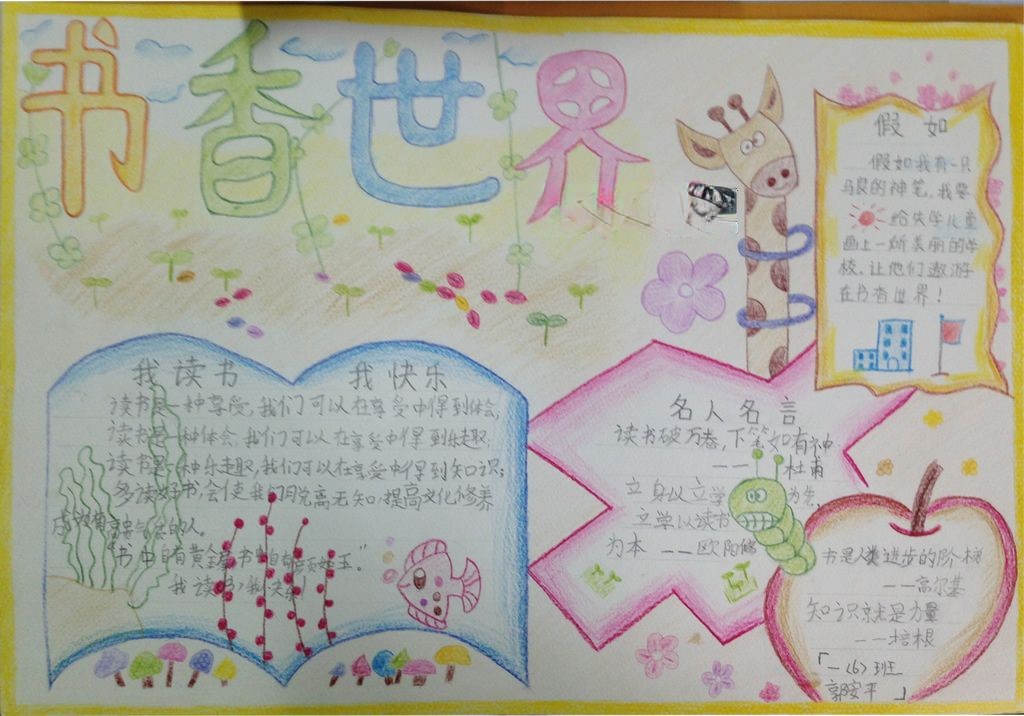 书香世界
假如
假如我有一只
马良的神笔，我要
给失学儿童
画上一所美丽的学
校，让他们遨游
在书香世界！
我读书 我快乐
读书是一种享受，我们可以在享受中得到体会；
读书是一种体会，我们可以在享受中得到乐趣；
读书是一种乐趣，我们可以在享受中得到知识；
多读好书，会使我们脱离无知，提高文化修养
的人。
"书中自有黄金屋 书中自有颜如玉。"
我读书 我快乐！
名人名言
读书破万卷，下笔如有神
——杜甫
立身以立学为先，
立学以读书
为本 ——欧阳修
书是人类进步的阶梯
——高尔基
知识就是力量
——培根
「一（6）班
郭安平」